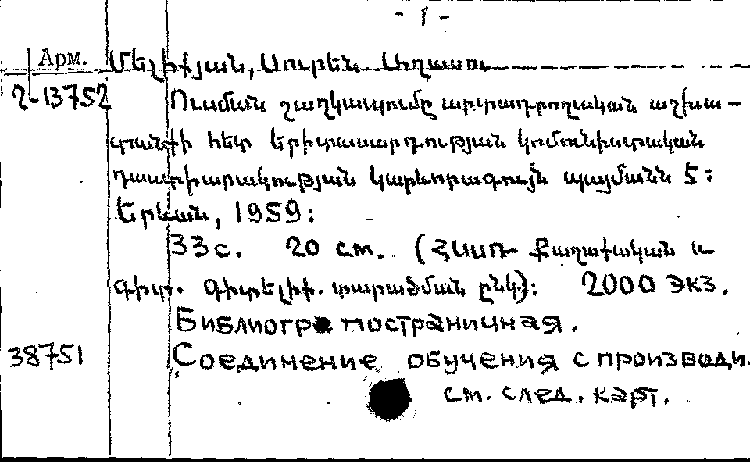 - 1 -
Арм. Մելիքյան, Սուրեն Աղասու
2-13752 Ուսման շաղկապումը արտադրողական աշխա-
տանքի հետ երիտասարդության կոմունիստական
դաստիարակության կարևորագույն պայմանն է:
Երևան, 1959:
33 с. 20 см. (ՀՍՍՌ Քաղաքական և
գիտ. գիտելիք. տարածման ընկ): 2000 экз.
Библиогр постраничная.
38751 Соединение обучения с производи.
см. след. карт.